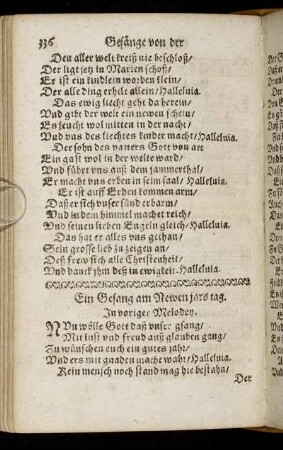 336 Gesänge von der
Den aller welt kreiß nie beschloß/
Der ligt jetz in Marien schoß/
Er ist ein kindlein worden klein/
Der alle ding erhelt allein/Halleluia.
Das ewig liecht geht da herein/
Vnd gibt der welt ein newen schein/
Es leucht wol mitten in der nacht/
Vnd vns des liechtes kinder macht/Halleluia.
Der sohn des vatters Gott von art
Ein gast wol in der welte ward/
Vnd führt vns auß dem jammerthal/
Er macht vns erben in seim saal/Halleluia.
Er ist auff Erden kommen arm/
Daß er sich vnser sünd erbarm/
Vnd in dem himmel machet reich/
Vnd seinen lieben Engeln gleich/Halleluia.
Das hat er alles vns gethan/
Sein grosse lieb zu zeigen an/
Deß frew sich alle Christenheit/
Vnd danck ihm deß in ewigkeit/Halleluia.
Ein Gesang am Newen jars tag.
In voriger Meloden.
NVn wölle Gott daß vnser gsang/
Mit lust vnd freud auß glauben gang/
Zu wünschen euch ein gutes jahr/
Vnd ers mit gnaden mache wahr/Halleluia.
Kein mensch noch stand mag hie bestahn/
Der